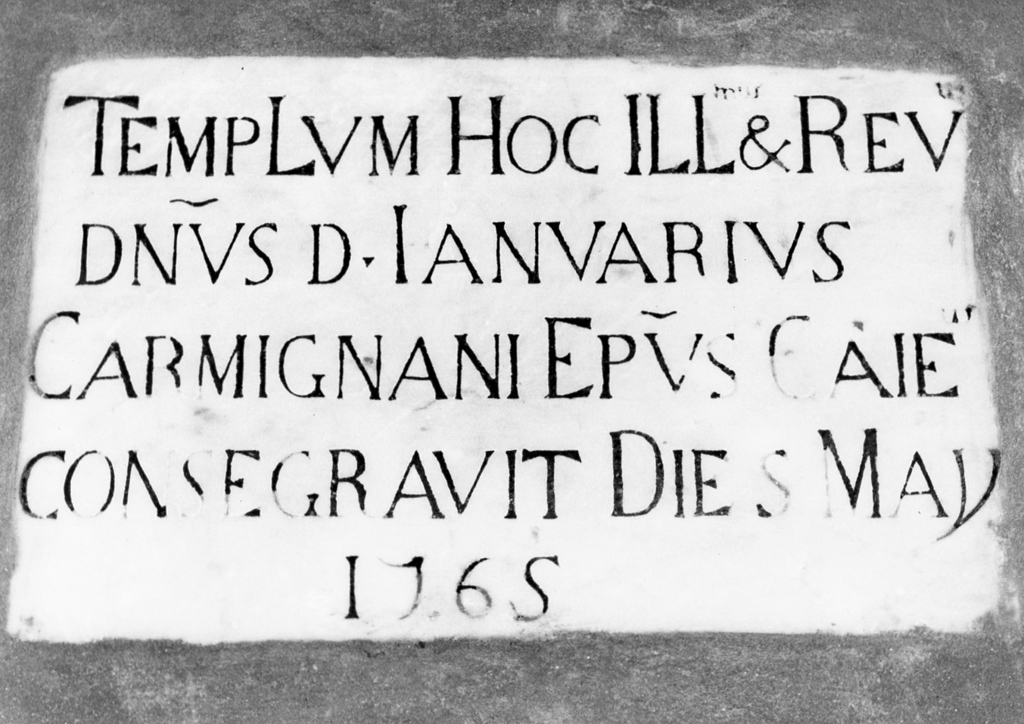 TEMPLVM HOC ILLmus & REVus
DÑVS D. IANVARIVS
CARMIGNANI EPṼS CAIEN
CONSEGRAVIT DIE S MAŲ
1765